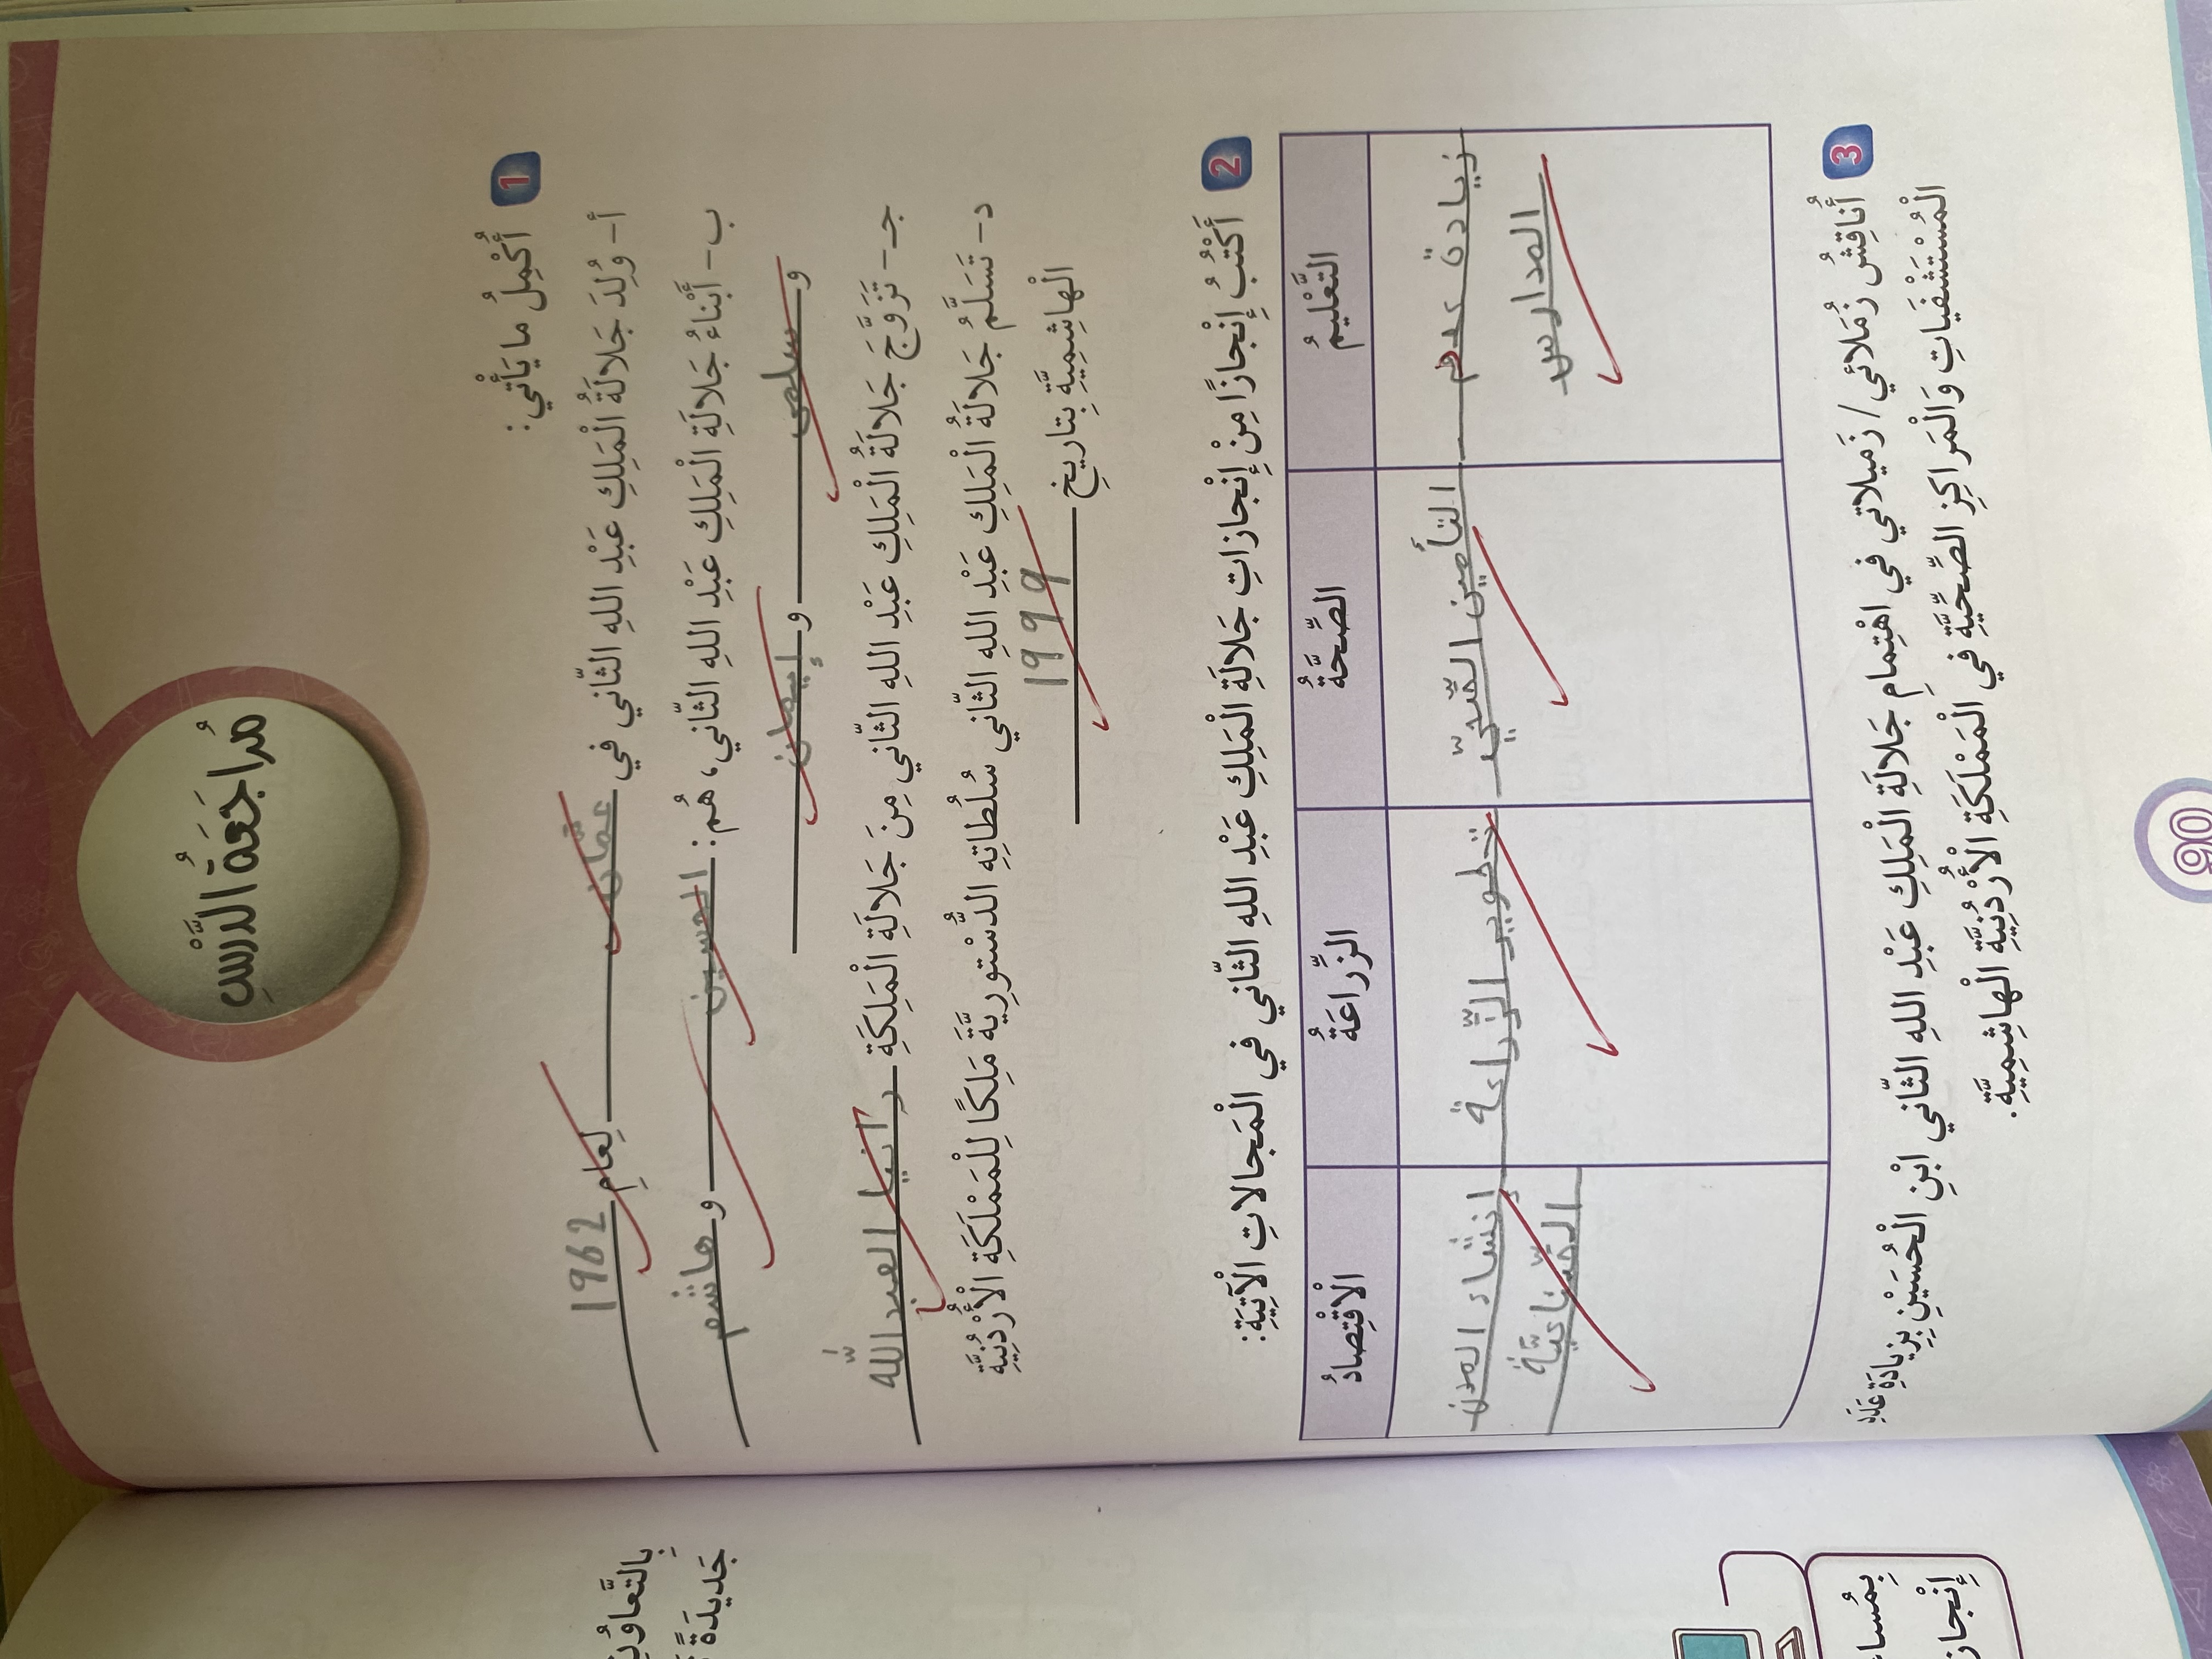 مُراجَعَةُ الدَّرْسِ
1 أُكْمِلُ ما يَأْتي:
أ- وُلِدَ جَلالَةُ الْمَلِكِ عَبْدِ اللهِ الثّاني في عمّان لِعامِ 1962
ب- أَبْناءُ جَلالَةِ الْمَلِكِ عَبْدِ اللهِ الثّاني، هُم: الحسين و هاشم
و سلمى و إيمان
جـ- تَزَوَّجَ جَلالَةُ الْمَلِكِ عَبْدِ اللهِ الثّاني مِنَ جَلالَةِ الْمَلِكَةِ رانيا العبدالله
د- تَسَلَّمَ جَلالَةُ الْمَلِكِ عَبْدِ اللهِ الثّاني سُلُطاتِهِ الدُّسْتورِيَّةَ مَلِكًا لِلْمَمْلَكَةِ الْأُرْدُنِيَّةِ
الْهاشِمِيَّةِ بِتاريخِ 1999
2 أَكْتُبُ إِنْجازًا مِنْ إِنْجازاتِ جَلالَةِ الْمَلِكِ عَبْدِ اللهِ الثّاني في الْمَجالاتِ الْآتِيَةِ:
التَّعْليمُ الصِّحَّةُ الزِّراعَةُ الْاقْتِصادُ
زيادة عدد التأمين الصّحيّ تطوير الزّراعة إنشاء المدن
المدارس الصّناعيّة
3 أُناقِشُ زُمَلائي/ زَميلاتي في اهْتِمامِ جَلالَةِ الْمَلِكِ عَبْدِ اللهِ الثّاني ابْنِ الْحُسَيْنِ بِزِيادَةِ عَدَدِ
الْمُسْتَشْفَياتِ وَالْمَراكِزِ الصِّحِّيَّةِ في الْمَمْلَكَةِ الْأُرْدُنِيَّةِ الْهاشِمِيَّةِ.
90
بِالتَّعاوُنِ
جَديدَةً
بِمُسا
إِنْجاز